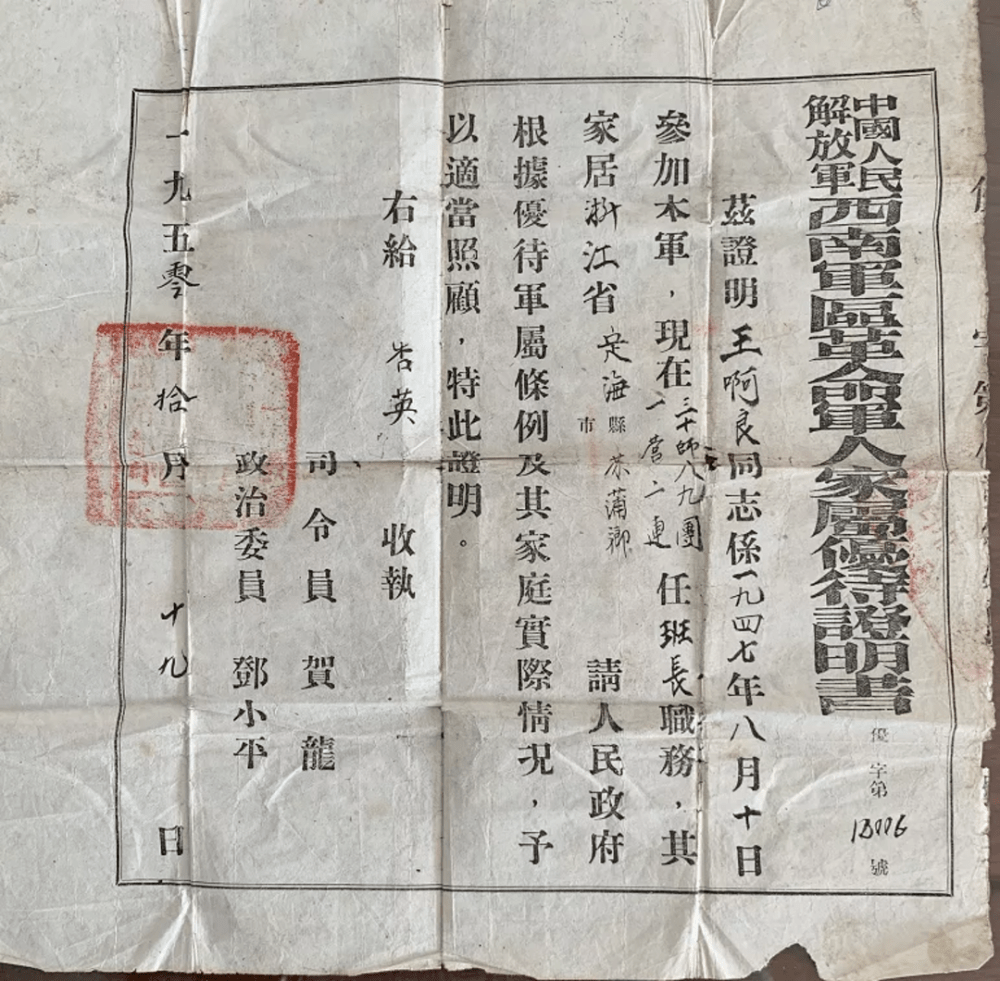 中國人民
解放軍
西南軍區革命軍人家屬優待證明書
優字第13006號
茲證明王啊良同志係一九四七年八月十日
參加本軍，現在三十師八九團二營二連任班長職務，其
家居浙江省定海縣市茶蒲鄉請人民政府
根據優待軍屬條例及其家庭實際情況，予
以適當照顧，特此證明。
右給杏英收執
司令員賀龍
政治委員鄧小平
一九五零年拾月十九日